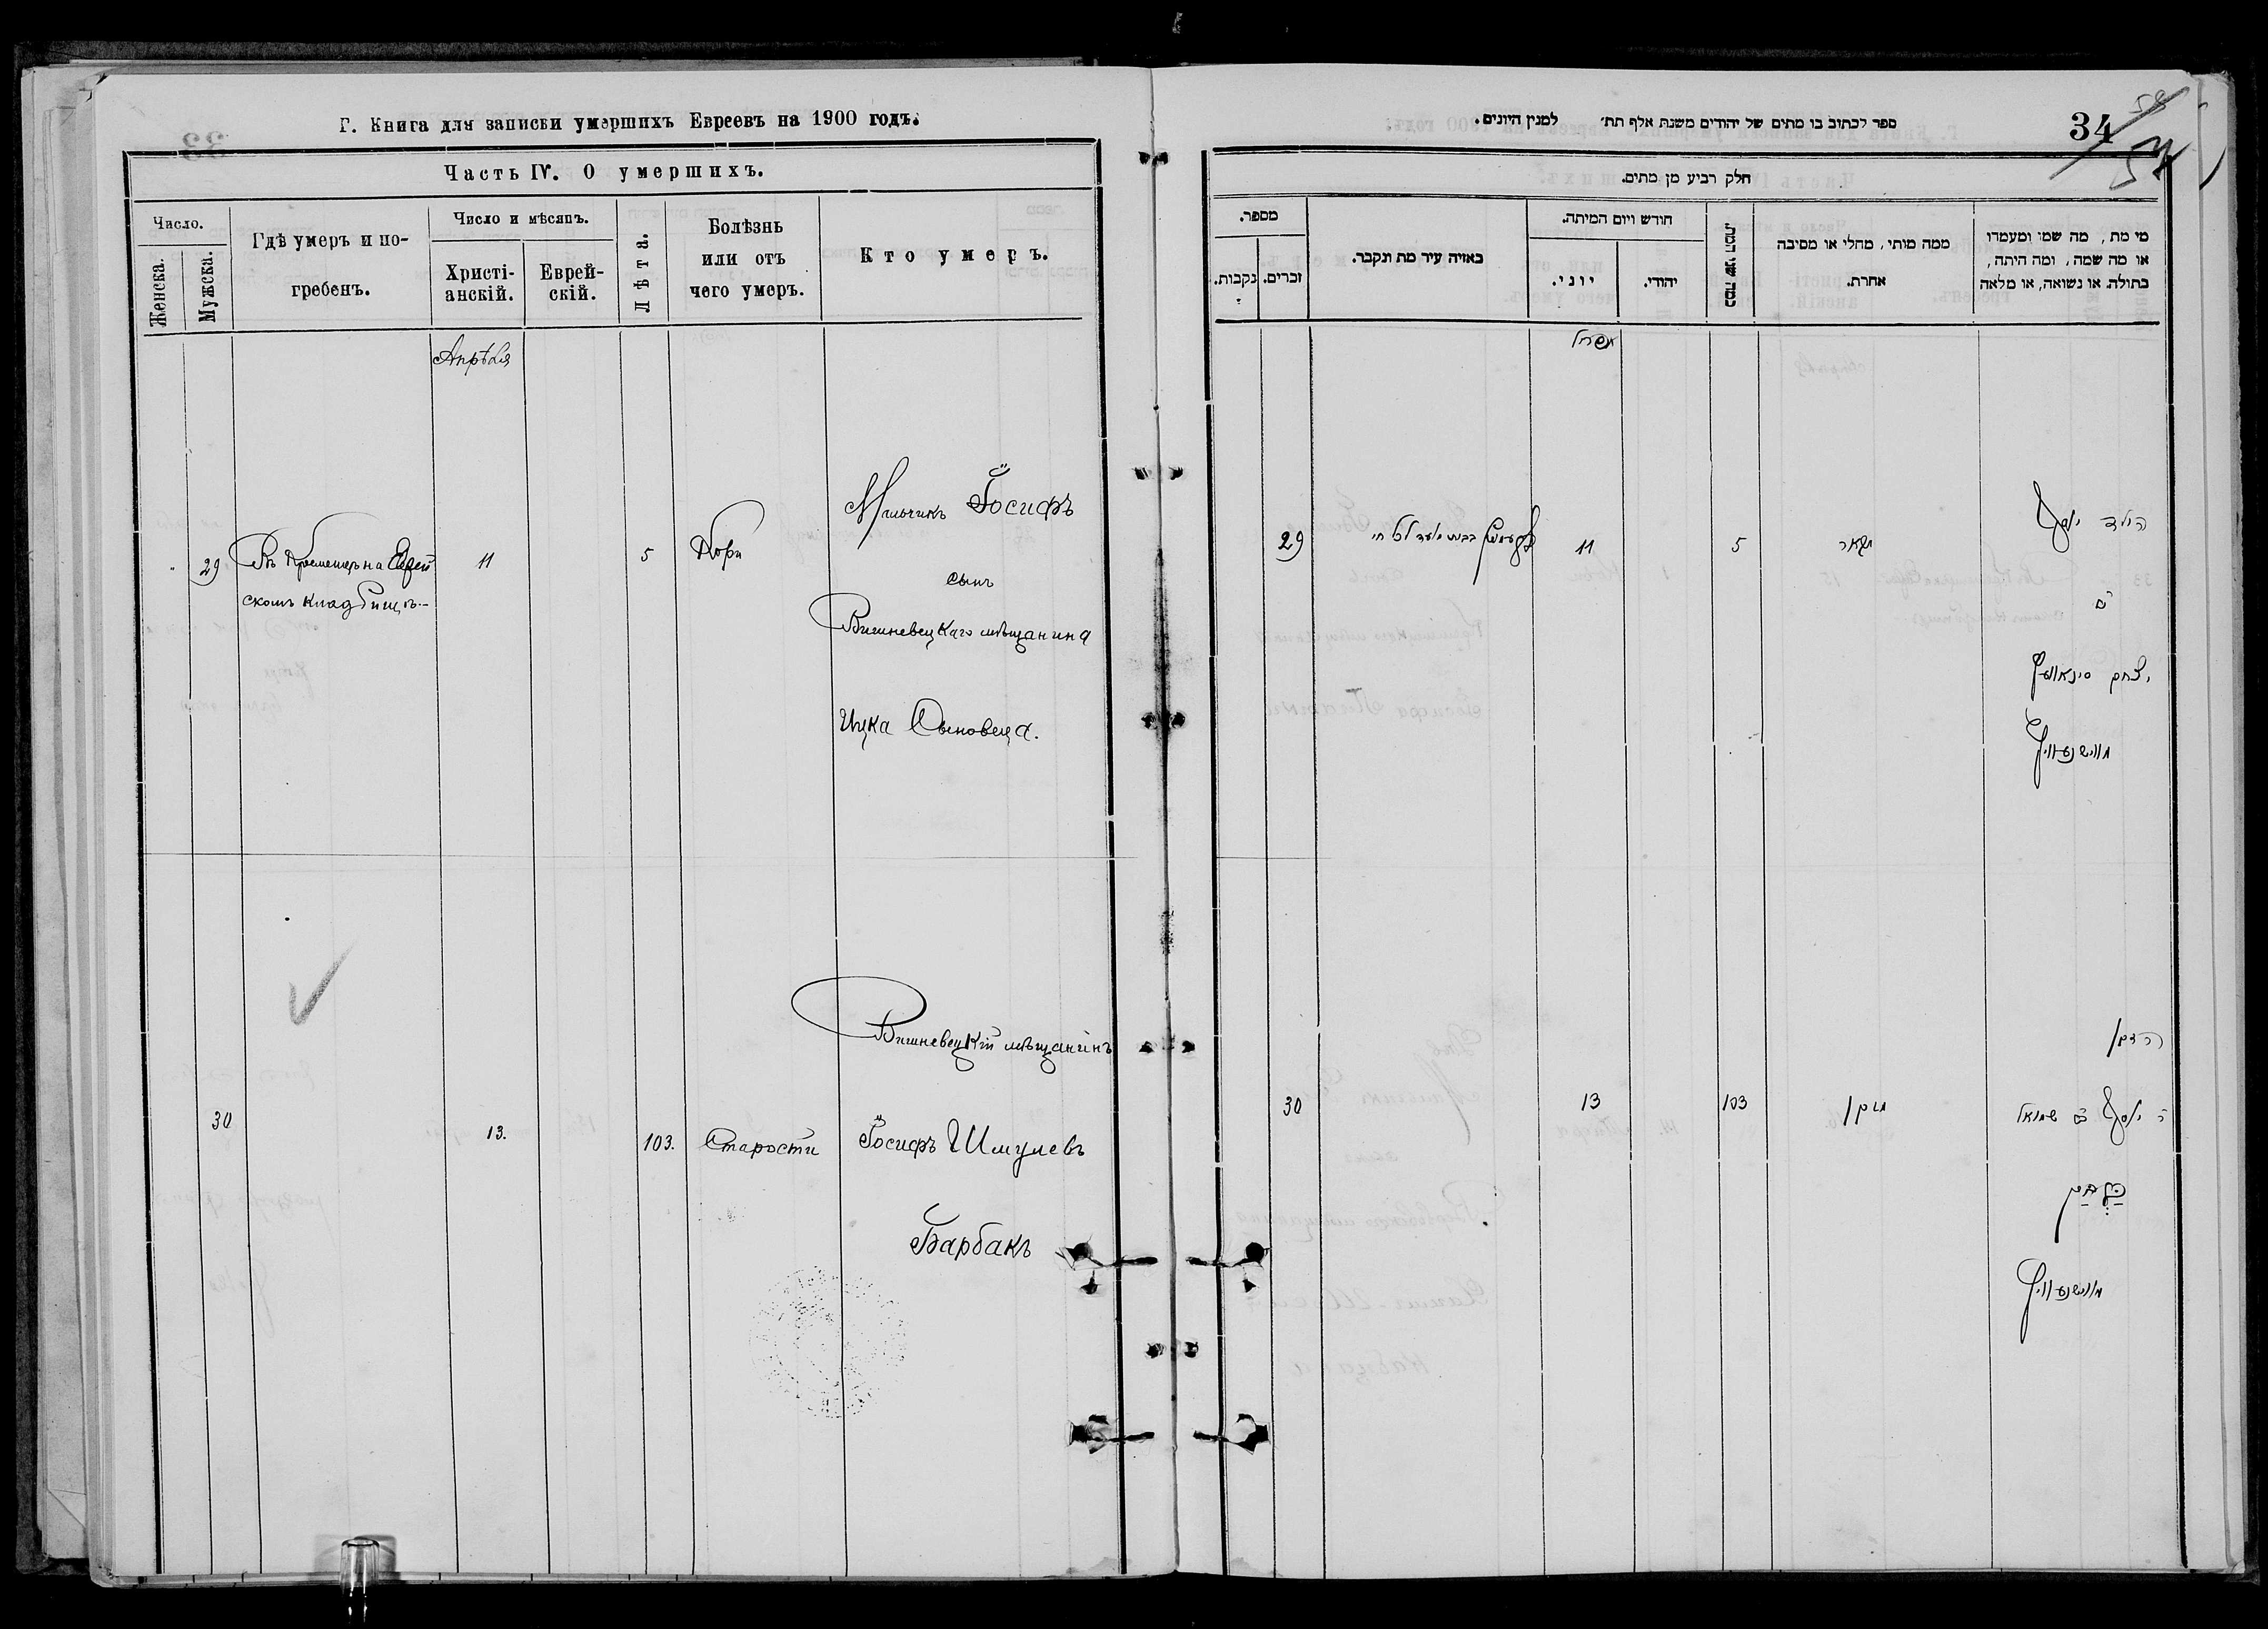 Г. Книга для записки умершихъ Евреевъ на 1900 годъ.
Часть IV. О умершихъ.
Число.
Женска.
Мужска.
Гдѣ умеръ и по-
гребенъ.
Число и мѣсяцъ.
Христі-
анскій.
Еврей-
скій.
Лѣта.
Болѣзнь
или отъ
чего умеръ.
Кто умеръ.
Апрѣля
29
Въ Кременцѣ на Еврей
скомъ кладбищѣ.
11
5
Кори
Мальчикъ Іосифъ
сынъ
Вишневецкаго мѣщанина
Ицка Сыновеца.
30
13.
103.
Старости
Вишневецкій мѣщанинъ
Іосифъ Шмулевъ
Барбакъ
34
ספר לכתוב בו מתים של יהודים משנת אלף תת׳ למנין היונים.
חלק רביע מן מתים.
מספר.
נקבות.
זכרים.
באזיה עיר מת ונקבר.
חודש ויום המיתה.
יוני.
יהודי.
כמה שני המת.
ממה מותי, מחלי או מסיבה
אחרת.
מי מת, מה שמו ומעמדו
או מה שמה, ומה היתה,
בתולה או נשואה, או מלאה
אפריל
29
11
5
הילד יוסף
יצחק
מווישנעוויץ
30
13
103
מזקן
הזקן
ר׳ יוסף ב׳ שמואל
מווישנעוויץ